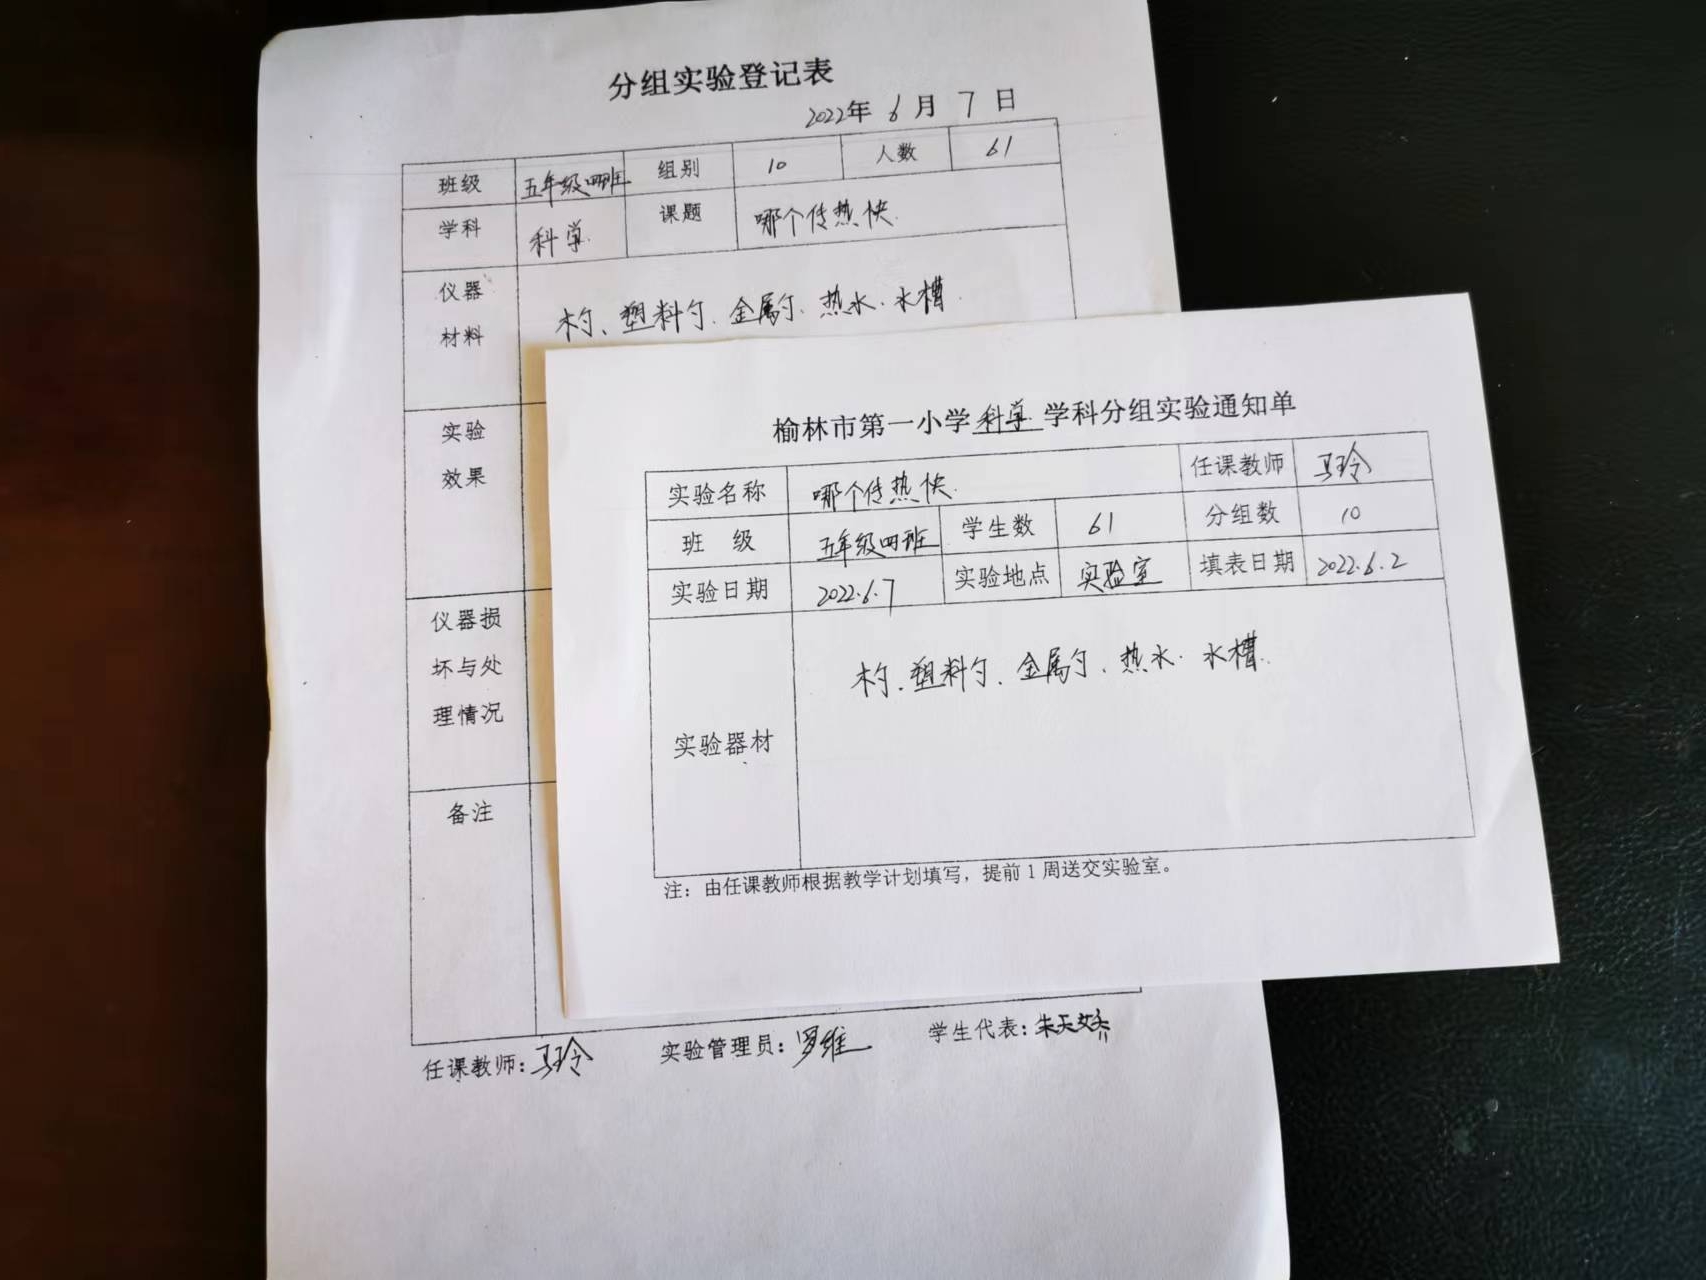 分组实验登记表
2022年 6月 7日
班级 五年级四班 组别 10 人数 61
学科 科学 课题 哪个传热快
仪器材料 木勺、塑料勺、金属勺、热水、水槽
实验效果
仪器损坏与处理情况
备注
任课教师:马玲 实验管理员:罗维 学生代表:朱天娇
榆林市第一小学科学学科分组实验通知单
实验名称 哪个传热快 任课教师 马玲
班 级 五年级四班 学生数 61 分组数 10
实验日期 2022.6.7 实验地点 实验室 填表日期 2022.6.2
实验器材 木勺、塑料勺、金属勺、热水、水槽
注:由任课教师根据教学计划填写,提前1周送交实验室。